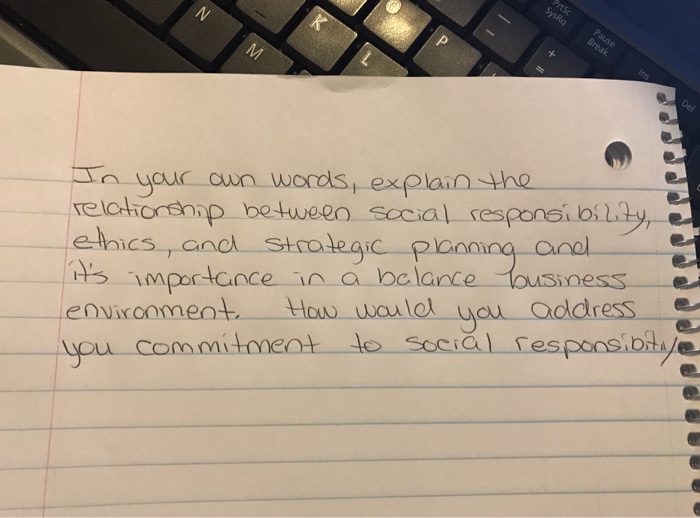 N
M
K
L
P
PrtSc
SysRq
Pause
Break
Ins
Del
+
=
In your own words, explain the
relationship between social responsibility,
ethics, and strategic planning and
it's importance in a balance business
environment. How would you address
you commitment to social responsibity